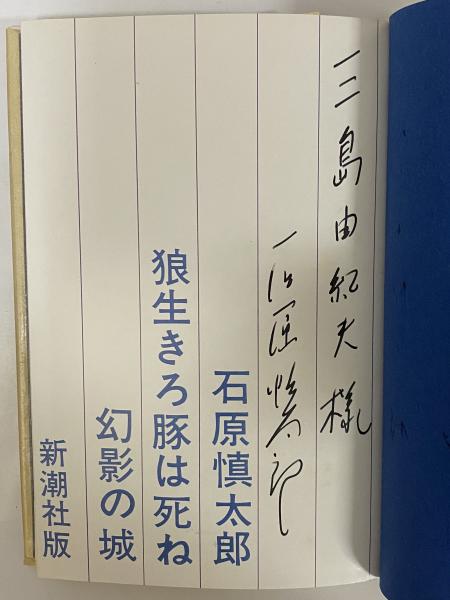 三島由紀夫様
石原慎太郎
石原慎太郎
狼生きろ豚は死ね
幻影の城
新潮社版